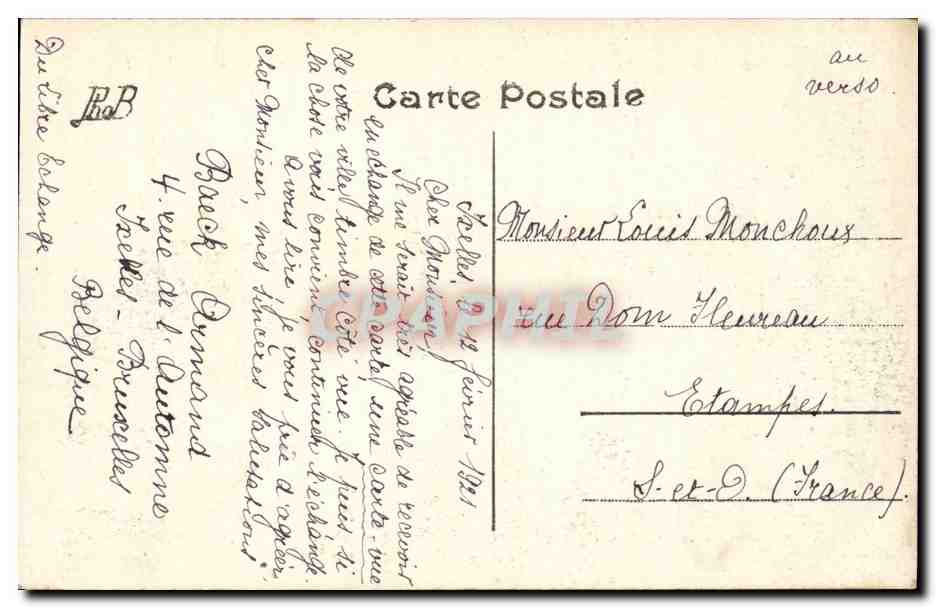 Carte Postale
PhoB
au
verso.
Ixelles, 12 février 1921.
Cher Monsieur,
Il me serait très agréable de recevoir
en échange de cette carte, une carte-vue
de votre ville, timbre côté vue. Je puis si
la chose vous convient, continuer l'échange.
A vous lire, je vous prie d'agréer,
cher Monsieur, mes sincères salutations.
Baeck Armand
4. rue de l'Automne
Ixelles - Bruxelles
Belgique
Du Libre Echange.
Monsieur Louis Monchoux
rue Dom Fleureau
Etampes.
S-et-O. (France).